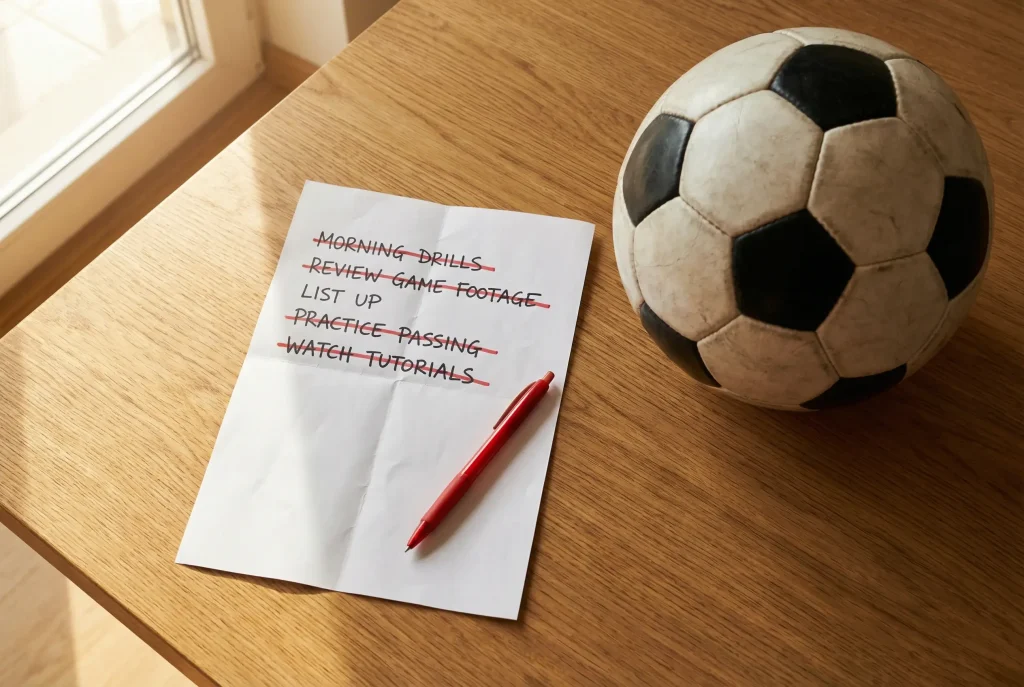 MORNING DRILLS
REVIEW GAME FOOTAGE
LIST UP
PRACTICE PASSING
WATCH TUTORIALS